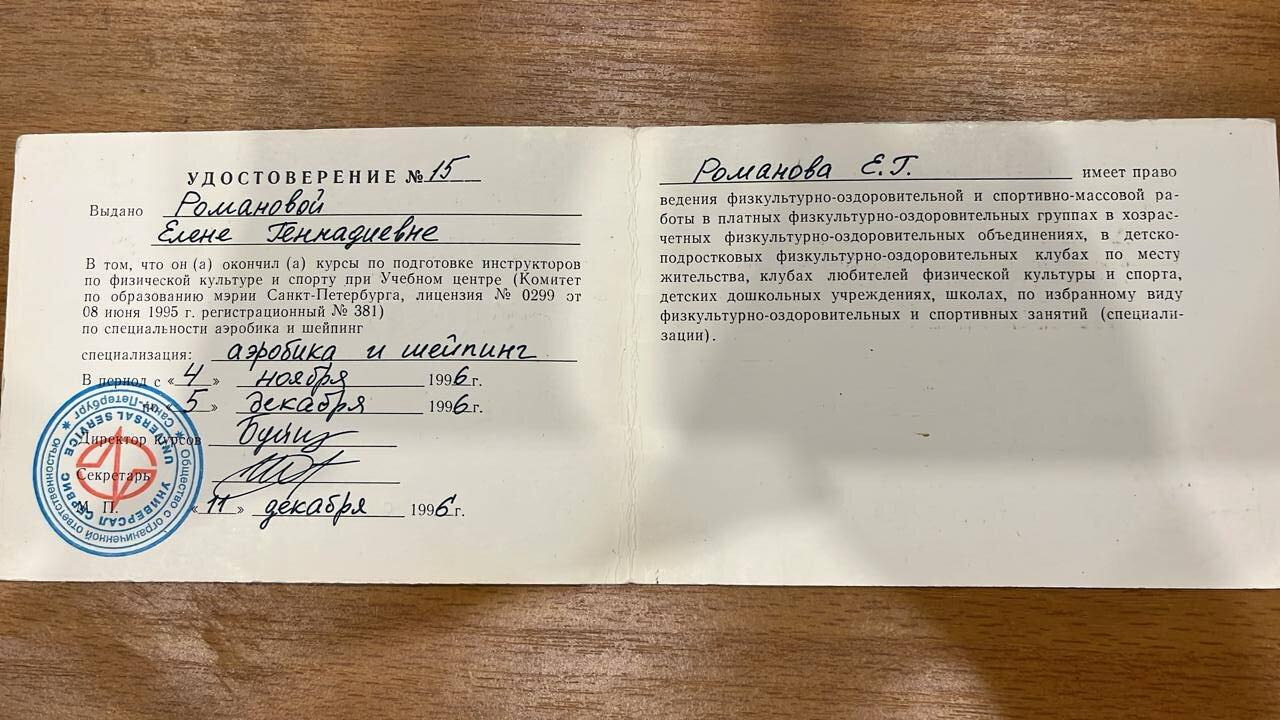 УДОСТОВЕРЕНИЕ № 15
Выдано Романовой
Елене Геннадиевне
В том, что он (а) окончил (а) курсы по подготовке инструкторов
по физической культуре и спорту при Учебном центре (Комитет
по образованию мэрии Санкт-Петербурга, лицензия № 0299 от
08 июня 1995 г. регистрационный № 381)
по специальности аэробика и шейпинг
специализация: аэробика и шейпинг
В период с «4» ноября 1996 г.
по «5» декабря 1996 г.
Директор курсов
Секретарь
М. П. «11» декабря 1996 г.
Общество с ограниченной ответственностью
Санкт-Петербург
УНИВЕРСАЛ СЕРВИС
UNIVERSAL SERVICE
Романова Е. Г. имеет право
ведения физкультурно-оздоровительной и спортивно-массовой ра-
боты в платных физкультурно-оздоровительных группах в хозрас-
четных физкультурно-оздоровительных объединениях, в детско-
подростковых физкультурно-оздоровительных клубах по месту
жительства, клубах любителей физической культуры и спорта,
детских дошкольных учреждениях, школах, по избранному виду
физкультурно-оздоровительных и спортивных занятий (специали-
зации).